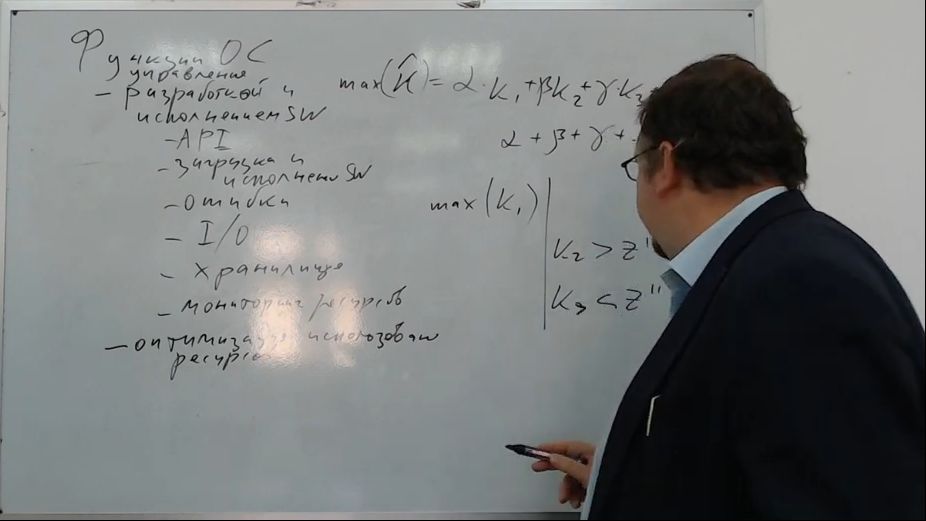 Функции ОС
управление
- разработкой и
исполнением SW
- API
- загрузка и
исполнен SW
- ошибки
- I/O
- хранилище
- мониторинг ресурсов
- оптимизация использован
ресурсов
max(k̂) = α·k₁ + βk₂ + γ·k₃
α + β + γ +
max(k₁)
k₂ > z'
k₃ < z"